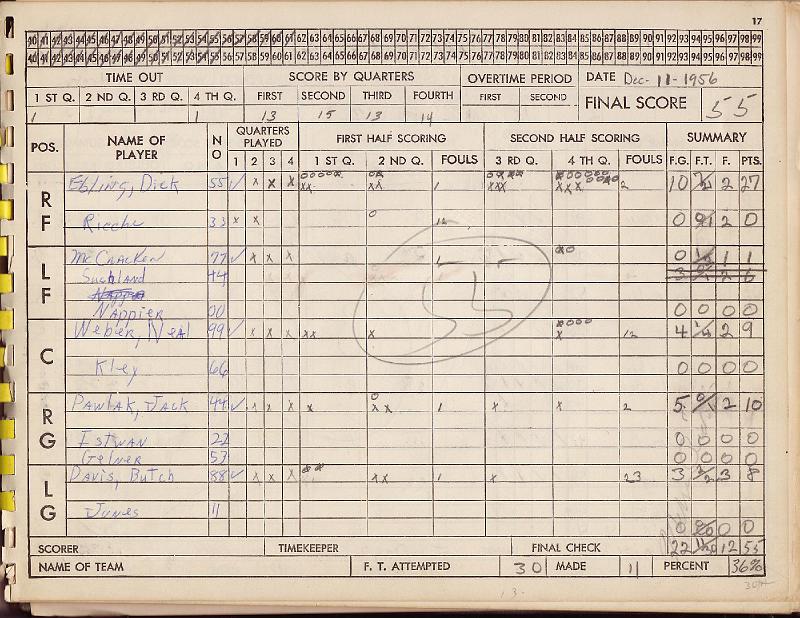 17
40 41 42 43 44 45 46 47 48 49 50 51 52 53 54 55 56 57 58 59 60 61 62 63 64 65 66 67 68 69 70 71 72 73 74 75 76 77 78 79 80 81 82 83 84 85 86 87 88 89 90 91 92 93 94 95 96 97 98 99
40 41 42 43 44 45 46 47 48 49 50 51 52 53 54 55 56 57 58 59 60 61 62 63 64 65 66 67 68 69 70 71 72 73 74 75 76 77 78 79 80 81 82 83 84 85 86 87 88 89 90 91 92 93 94 95 96 97 98 99
TIME OUT SCORE BY QUARTERS OVERTIME PERIOD DATE Dec- 11-1956
1 ST Q. 2 ND Q. 3 RD Q. 4 TH Q. FIRST SECOND THIRD FOURTH FIRST SECOND FINAL SCORE 55
1 1 13 15 13 14
POS. NAME OF PLAYER NO QUARTERS PLAYED FIRST HALF SCORING SECOND HALF SCORING SUMMARY
1 2 3 4 1 ST Q. 2 ND Q. FOULS 3 RD Q. 4 TH Q. FOULS F.G. F.T. F. PTS.
RF Ebling, Dick 55 ✓ x x x xx xx 1 xxx xxx 2 10 2 27
33 x x 12 0 2 0
LF McCracken 77 ✓ x x x 1 0 1 1
Suchland 44 3 2 6
Nappier 00 0 0 0 0
55
C Weber, Neal 99 ✓ x x x xx x x 12 4 2 9
Kley 66 0 0 0 0
RG Pawlak, Jack 44 ✓ x x x x xx 1 x x 2 5 2 10
Istwan 22 0 0 0 0
Gelner 53 0 0 0 0
LG Davis, Butch 88 ✓ x x x xx 1 x 23 3 3 8
Junes 11 0 0 0
SCORER TIMEKEEPER FINAL CHECK 22 12 55
NAME OF TEAM F. T. ATTEMPTED 30 MADE 11 PERCENT 36%